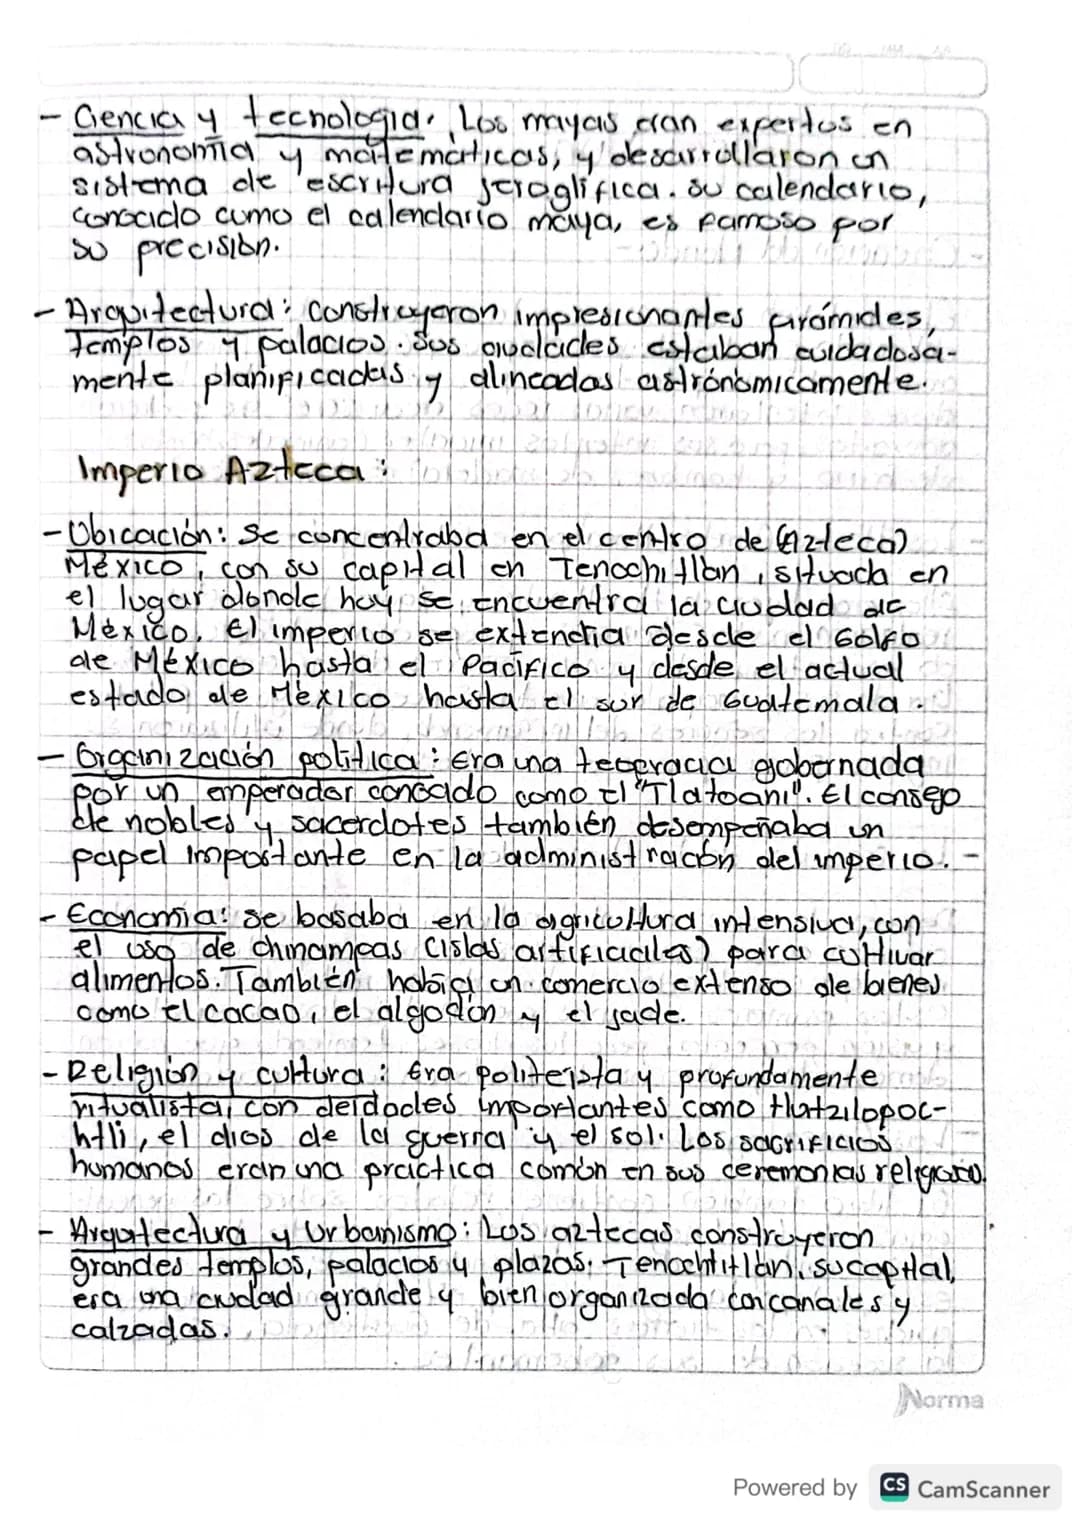 - Ciencia y tecnología. Los mayas eran expertos en
astronomía y matemáticas, y desarrollaron un
sistema de escritura jeroglífica. su calendario,
conocido como el calendario maya, es famoso por
su precisión.
- Arquitectura: Construyeron impresionantes pirámides,
Templos y palacios. Sus ciudades estaban cuidadosa-
mente planificadas y alineadas astrónomicamente.
Imperio Azteca:
- Ubicación: Se concentraba en el centro de (Azteca)
México, con su capital en Tenochitlan, situada en
el lugar donde hoy se encuentra la ciudad de
México. El imperio se extendia desde el Golfo
de México hasta el Pacífico y desde el actual
estado de México hasta el sur de Guatemala.
- Organización política: Era una teocracia gobernada
por un emperador conocido como el "Tlatoani". El consejo
de nobles y sacerdotes también desempeñaba un
papel importante en la administración del imperio. -
- Economía: se basaba en la agricultura intensiva, con
el uso de chinampas (islas artificiales) para cultivar
alimentos. También había un comercio extenso de bienes
como el cacao, el algodón y el jade.
- Religión y cultura: Era politeista y profundamente
ritualista, con deidades importantes como Huitzilopoc-
htli, el dios de la guerra y el sol. Los sacrificios
humanos eran una práctica común en sus ceremonias religiosas.
- Arquitectura y Urbanismo: Los aztecas construyeron
grandes templos, palacios y plazas. Tenochtitlán, su capital,
era una ciudad grande y bien organizada con canales y
calzadas.
Norma
Powered by CS CamScanner